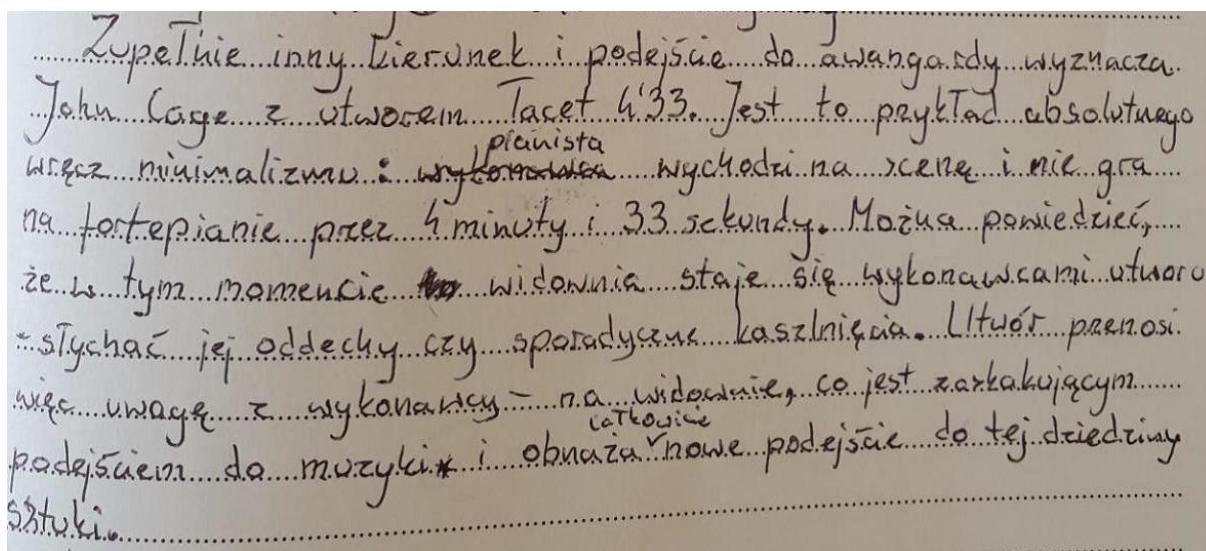 Zupełnie inny kierunek i podejście do awangardy wyznacza
John Cage z utworem Tacet 4'33. Jest to przykład absolutnego
pianista
wręcz minimalizmu: wykonawca wychodzi na scenę i nie gra
na fortepianie przez 4 minuty i 33 sekundy. Można powiedzieć,
że w tym momencie widownia staje się wykonawcami utworu
- słychać jej oddechy czy sporadyczne kaszlnięcia. Utwór przenosi
więc uwagę z wykonawcy - na widownie, co jest zaskakującym
całkowicie
podejściem do muzyki i obnaża nowe podejście do tej dziedziny
sztuki.